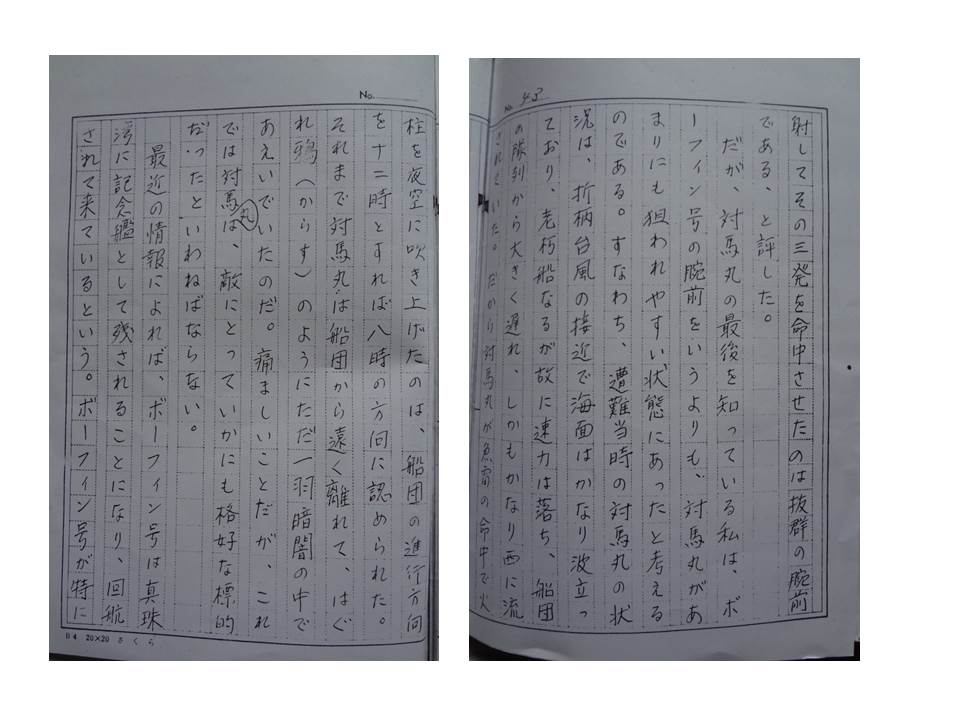 No. 43
射してその三発を命中させたのは抜群の腕前
である、と評した。
だが、対馬丸の最後を知っている私は、ボ
ーフィン号の腕前をいうよりも、対馬丸があ
まりにも狙われやすい状態にあったと考える
のである。すなわち、遭難当時の対馬丸の状
況は、折柄台風の接近で海面はかなり波立っ
ており、老朽船なるが故に速力は落ち、船団
の隊列から大きく遅れ、しかもかなり西に流
されていた。だから対馬丸が魚雷の命中で火
No.
柱を夜空に吹き上げたのは、船団の進行方向
を十二時とすれば八時の方向に認められた。
それまで対馬丸は船団から遠く離れて、はぐ
れ鴉（からす）のようにただ一羽暗闇の中で
あえいでいたのだ。痛ましいことだが、これ
では対馬丸は、敵にとっていかにも格好な標的
だったといわねばならない。
最近の情報によれば、ボーフィン号は真珠
湾に記念艦として残されることになり、回航
されて来ているという。ボーフィン号が特に
B4 20×20 さくら